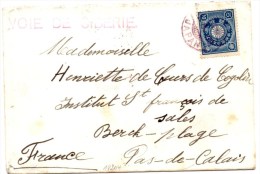 VOIE DE SIBERIE
Mademoiselle
Henriette de Cuers de Cogolin
Institut St françois de
sales
Berck-plage
France Pas-de-Calais